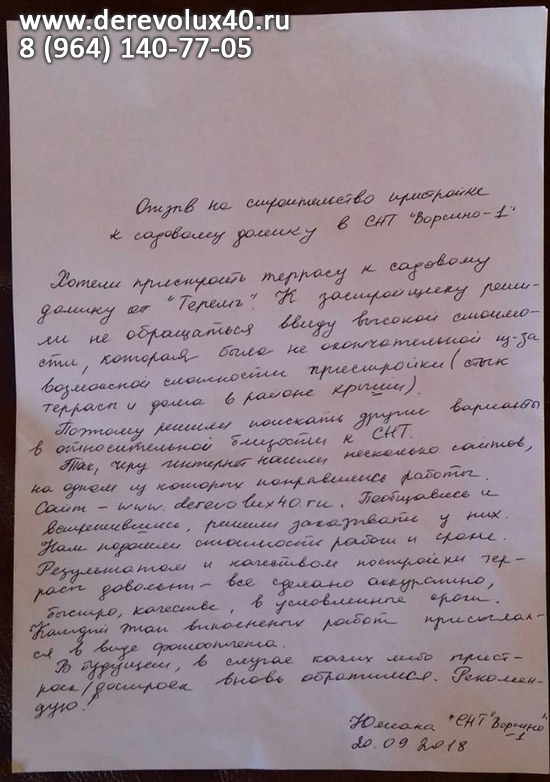 www.derevolux40.ru
8 (964) 140-77-05
Отзыв на строительство пристройки
к садовому домику в СНТ "Ворсино-1"
Хотели пристроить террасу к садовому
домику от "Теремъ". К застройщику реши-
ли не обращаться ввиду высокой стоимо-
сти, которая была не окончательной из-за
возможной сложности пристройки (стык
террасы и дома в районе крыши).
Поэтому решили поискать другие варианты
в относительной близости к СНТ.
Так, чрез интернет нашли несколько сайтов,
на одном из которых понравились работы.
Сайт - www.derevolux40.ru. Пообщавшись и
встретившись, решили заказывать у них.
Нам подошли стоимость работ и сроки.
Результатом и качеством постройки тер-
расы довольны - все сделано аккуратно,
быстро, качествен, в условленные сроки.
Каждый этап выполненых работ присылал-
ся в виде фотоотчета.
В будущем, в случае каких либо прист-
роек/достроек вновь обратимся. Рекомен-
дую!
Юлиана "СНТ "Ворсино
-1"
20.09.2018